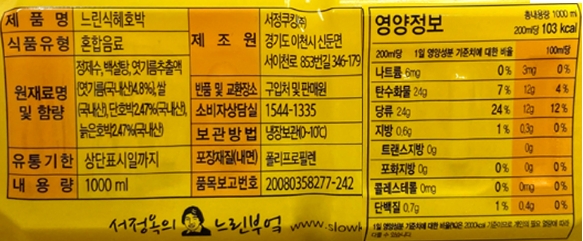 제품명 느린식혜호박
식품유형 혼합음료
원재료명 및 함량 정제수, 백설탕, 엿기름추출액
(엿기름(국내산)4.8%), 쌀
(국내산), 단호박2.47%(국내산),
늙은호박2.47%(국내산)
유통기한 상단표시일까지
내용량 1000 ml
제조원 서정쿠킹㈜
경기도 이천시 신둔면
서이천로 853번길 346-179
반품 및 교환장소 구입처 및 판매원
소비자상담실 1544-1335
보관방법 냉장보관(0~10℃)
포장재질(내면) 폴리프로필렌
품목보고번호 20080358277-242
서정옥의 느린부엌 www.slowk
영양정보 총내용량 1000 ml
200ml당 103 kcal
200ml당 1일 영양성분 기준치에 대한 비율 100ml당
나트륨 6mg 0% 3mg 0%
탄수화물 24g 7% 12g 4%
당류 24g 24% 12g 12%
지방 0.6g 1% 0.3g 0%
트랜스지방 0g 0g
포화지방 0g 0% 0g 0%
콜레스테롤 0mg 0% 0mg 0%
단백질 0.7g 1% 0.4g 0%
1일 영양성분 기준치에 대한 비율(%)은 2000kcal 기준이므로 개인의 필요 열량에 따라
다를 수 있습니다